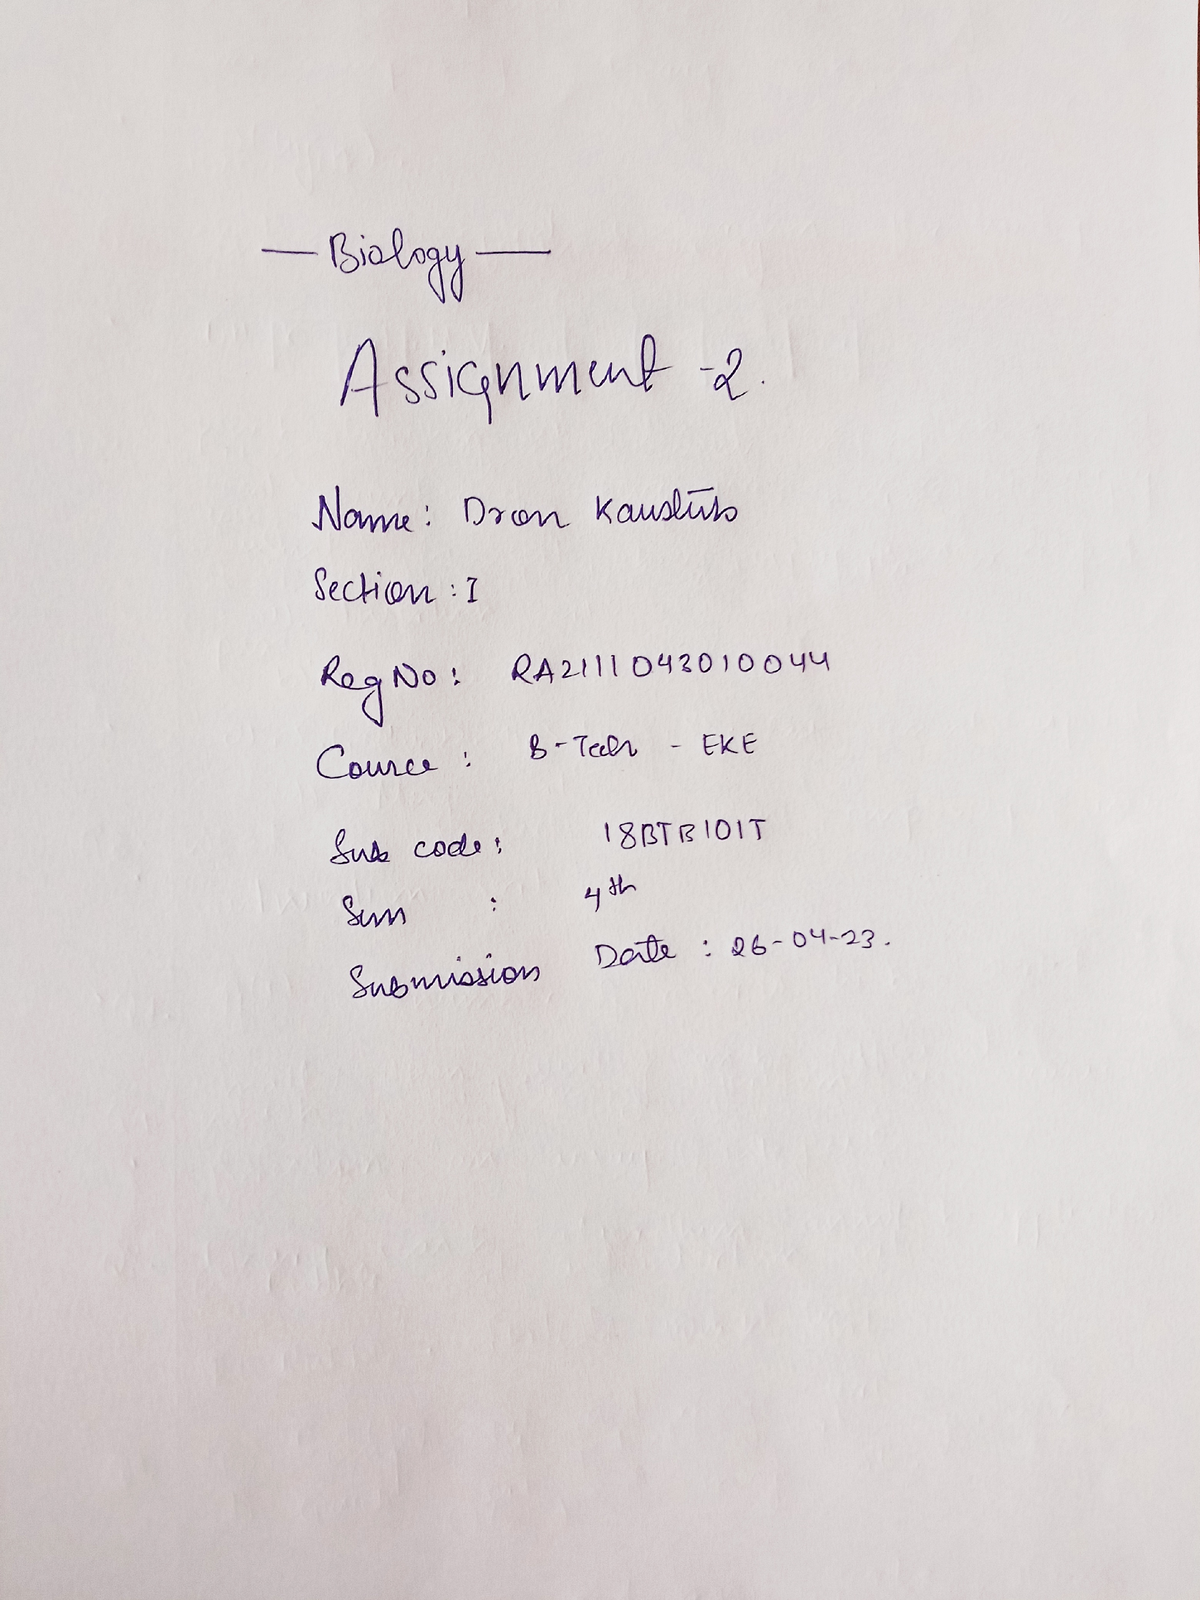 — Biology —
Assignment -2.
Name: Dron Kaustub
Section : I
Reg No : RA2111043010044
Cource : B-Tech - EKE
Sub code : 18BTB101T
Sem : 4th
Submission Date : 26-04-23.